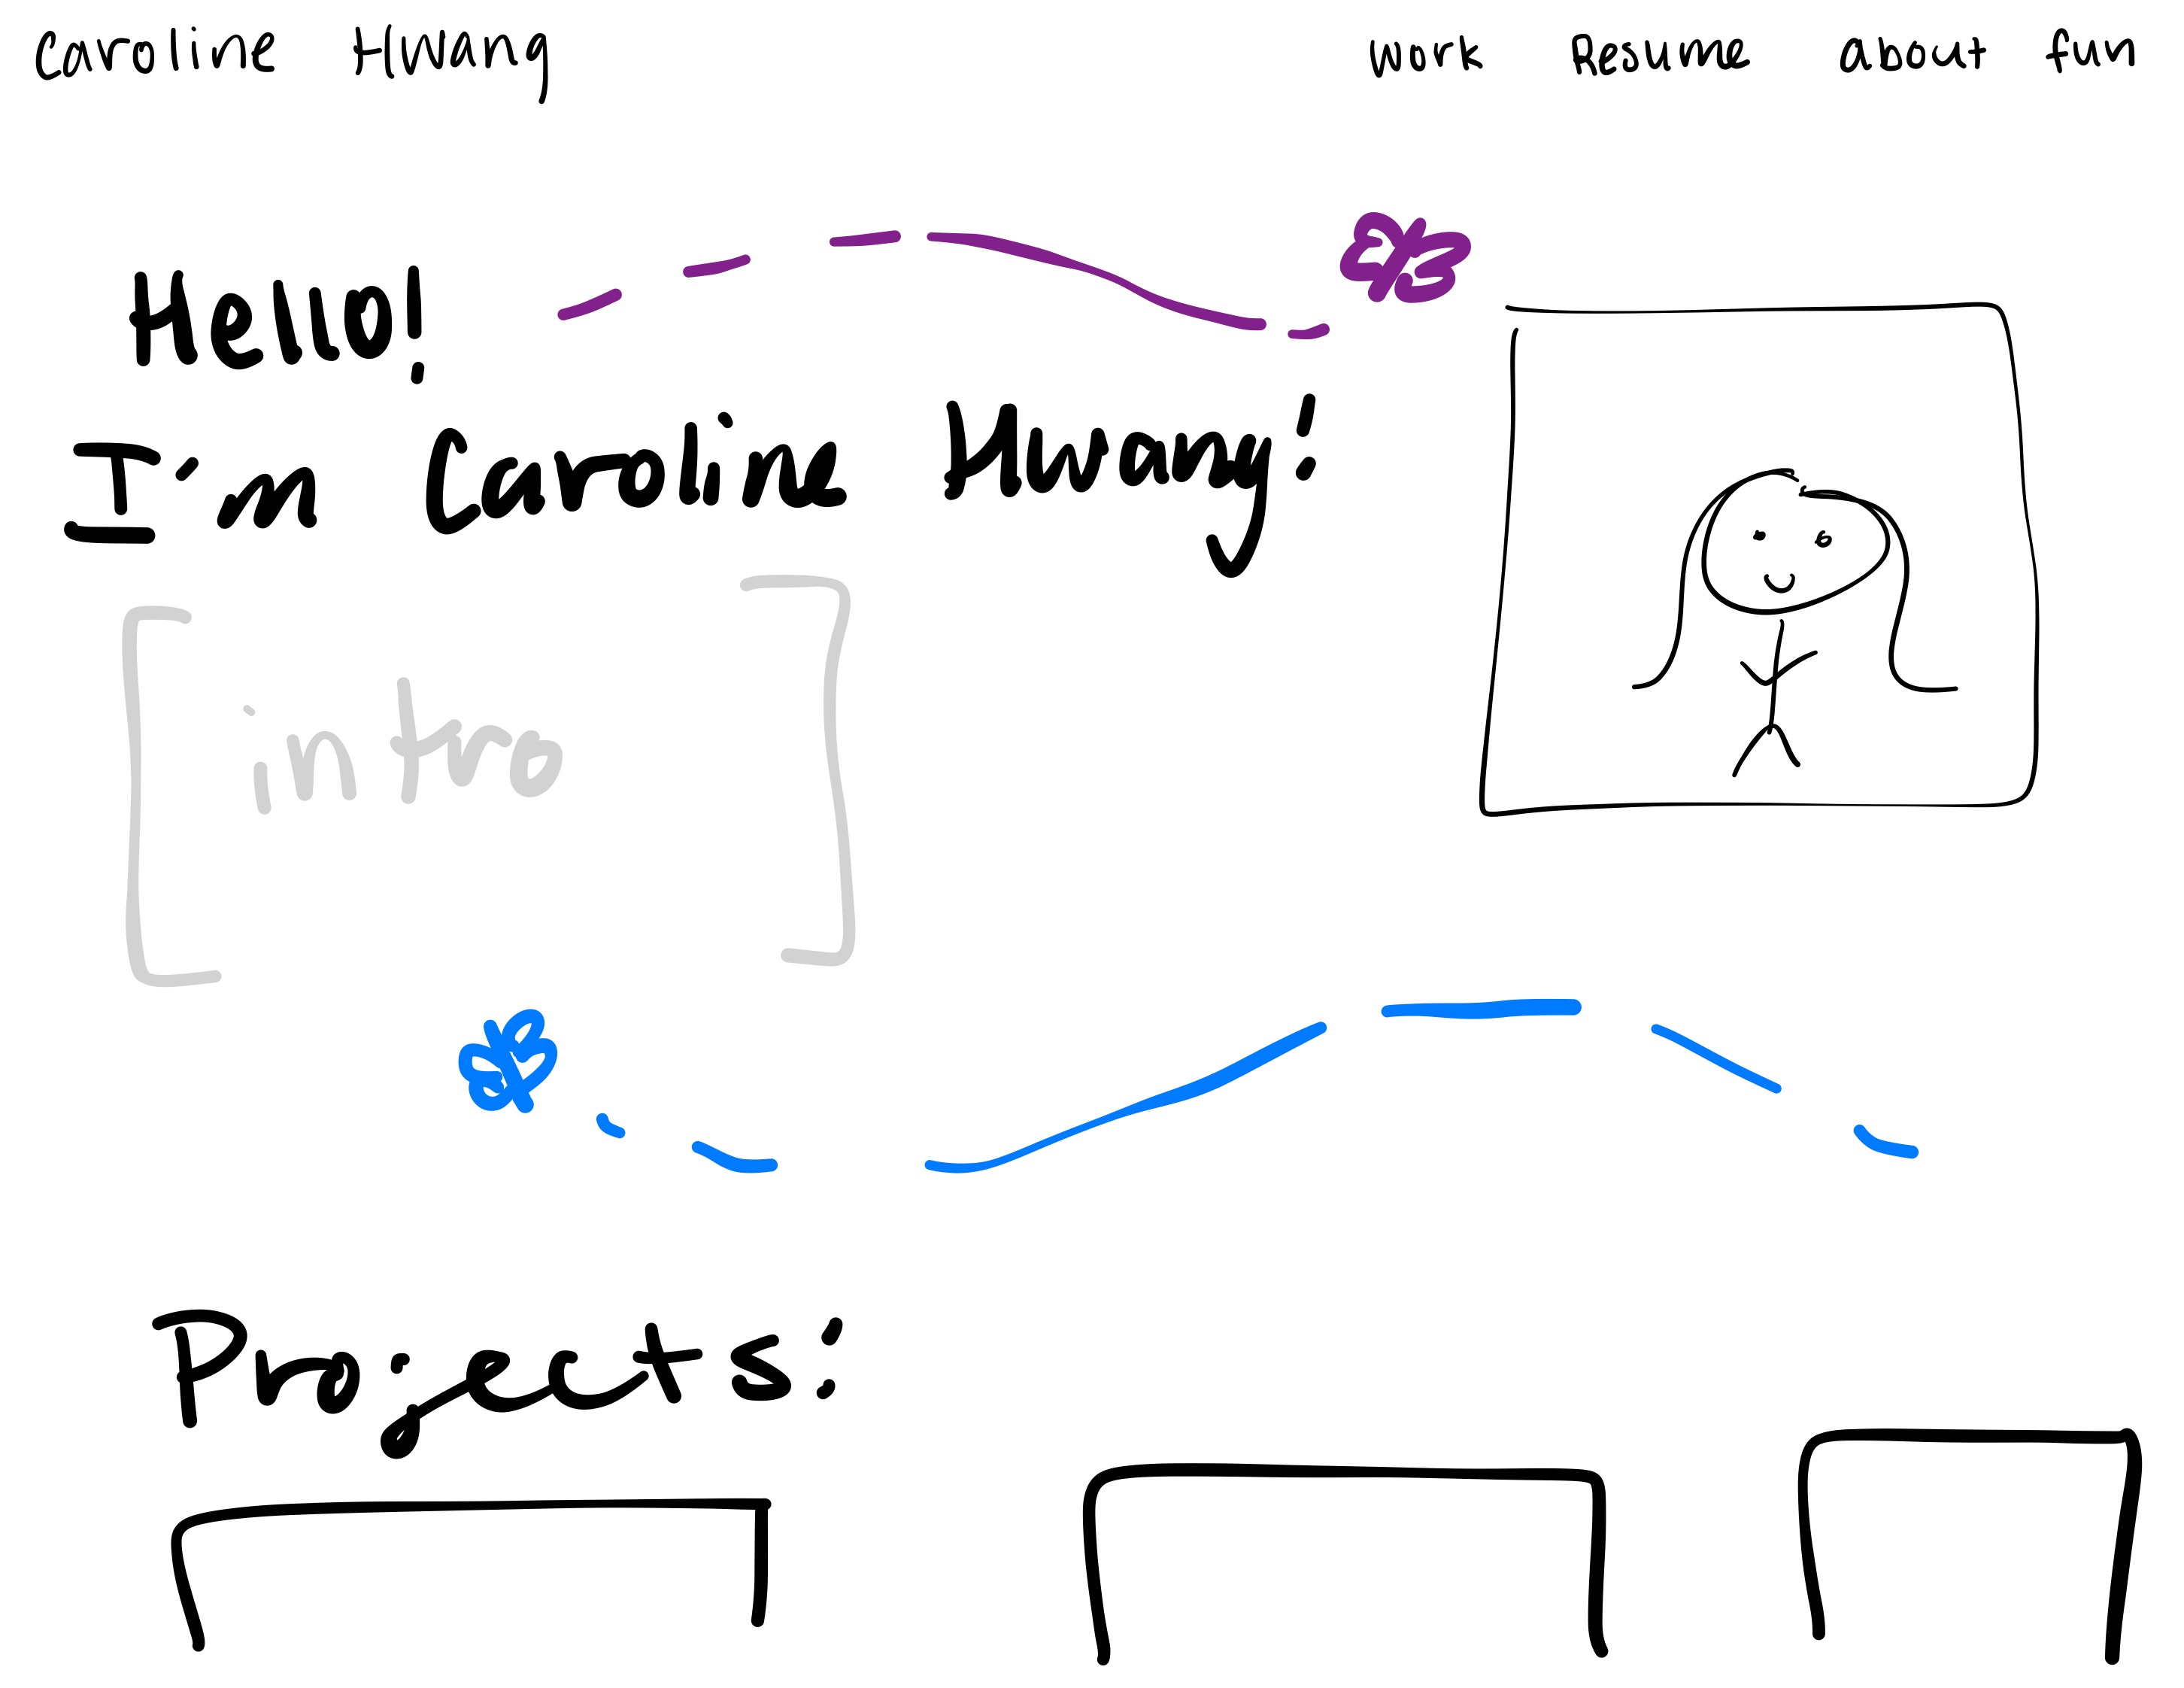 Caroline Hwang
work Resume about fun
Hello!
I'm Caroline Hwang!
[intro]
Projects: